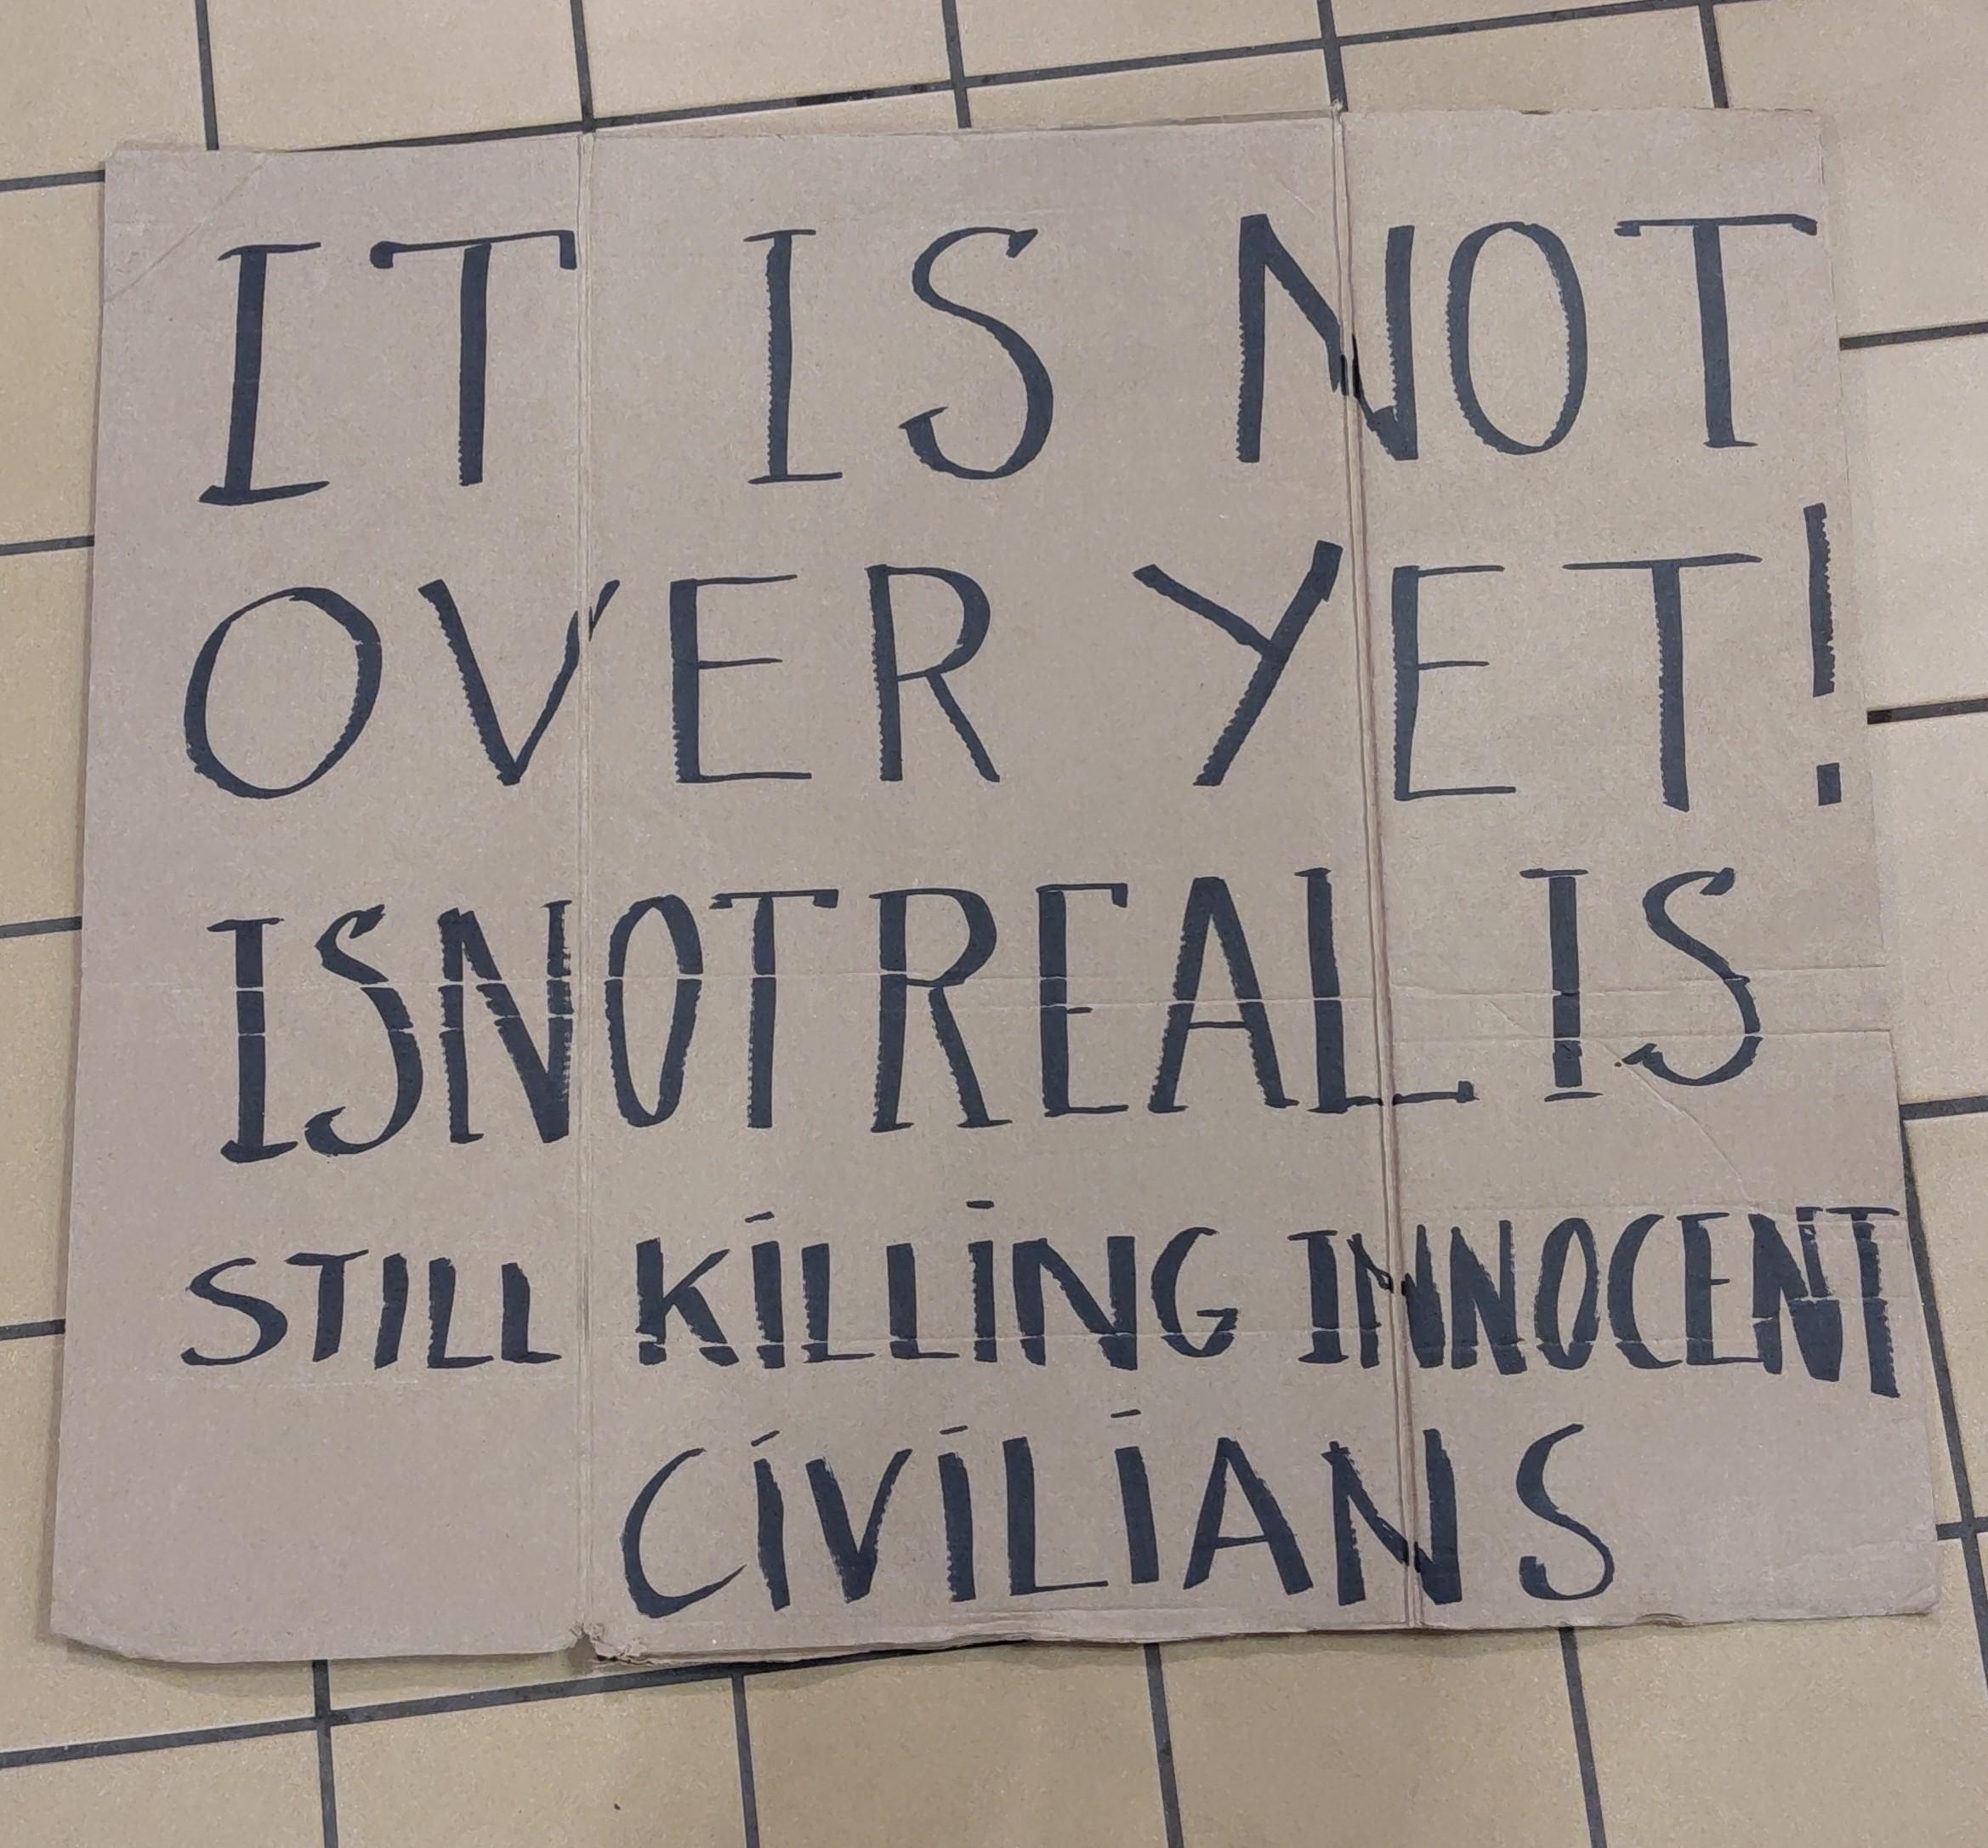 IT IS NOT
OVER YET!
ISNOTREAL IS
STILL KİLLİNG INNOCENT
CİVİLİANS